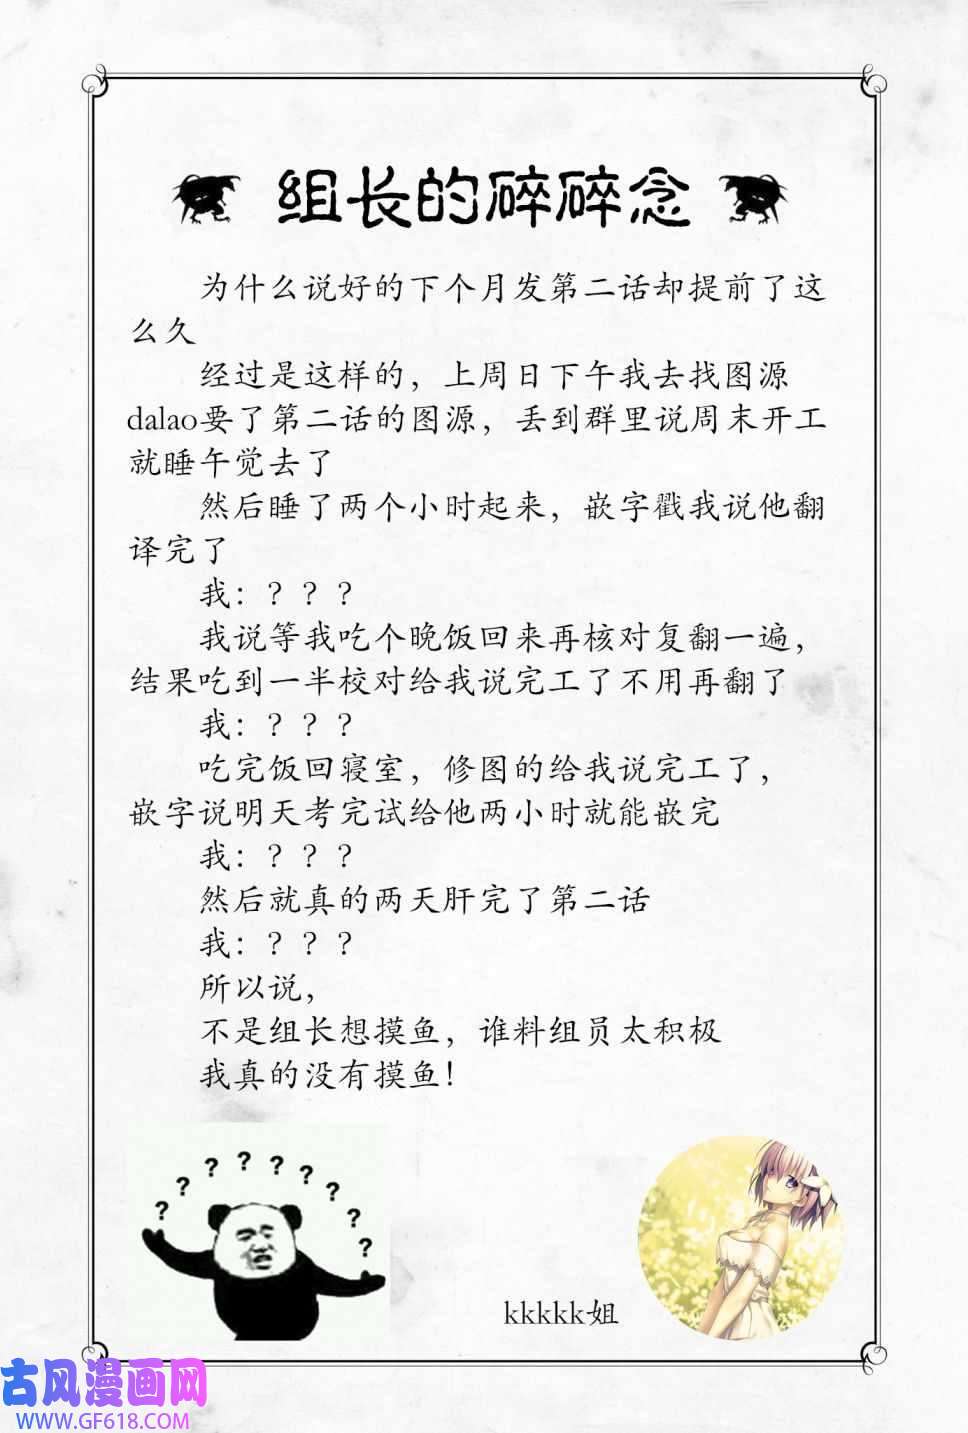 组长的碎碎念
为什么说好的下个月发第二话却提前了这
么久
经过是这样的，上周日下午我去找图源
dalao要了第二话的图源，丢到群里说周末开工
就睡午觉去了
然后睡了两个小时起来，嵌字戳我说他翻
译完了
我：？？？
我说等我吃个晚饭回来再核对复翻一遍，
结果吃到一半校对给我说完工了不用再翻了
我：？？？
吃完饭回寝室，修图的给我说完工了，
嵌字说明天考完试给他两小时就能嵌完
我：？？？
然后就真的两天肝完了第二话
我：？？？
所以说，
不是组长想摸鱼，谁料组员太积极
我真的没有摸鱼！
? ? ? ? ? ? ? ? ?
kkkkk姐
古风漫画网
WWW.GF618.COM